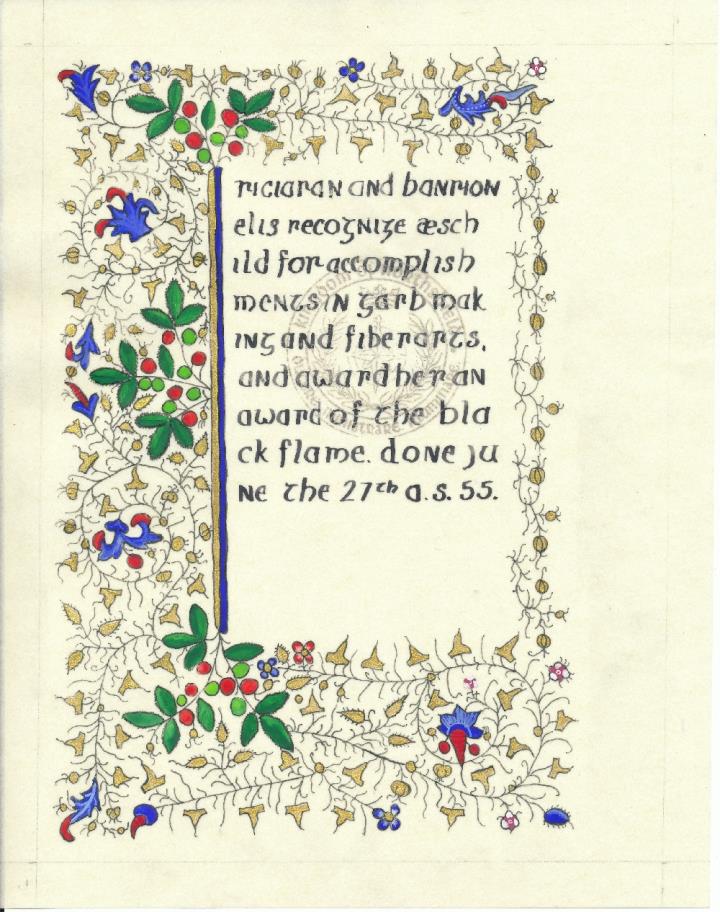 riciaran and banrion
elis recognize æsch
ild for accomplish
ments in garb mak
ing and fiber arts,
and award her an
award of the bla
ck flame. done ju
ne the 27th a.s. 55.